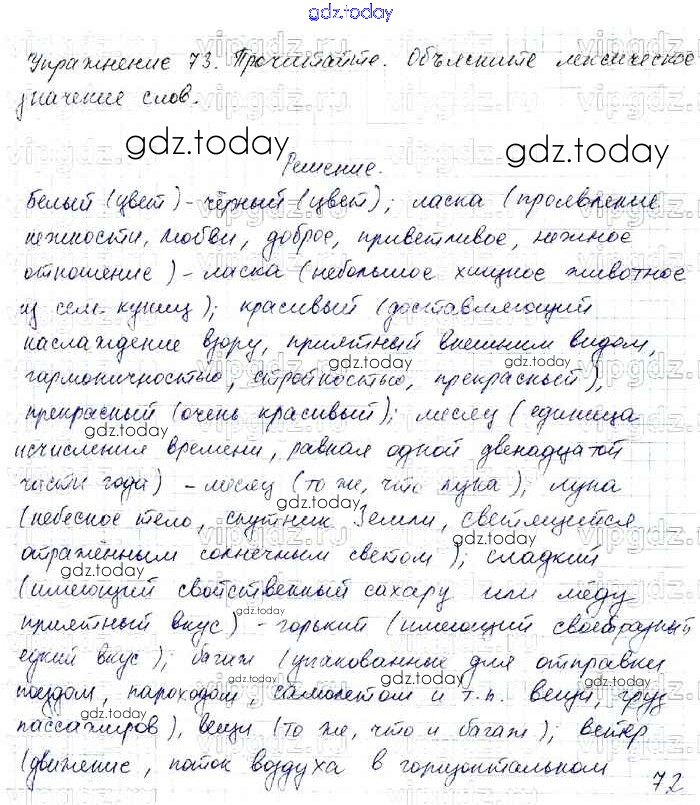 gdz.today
Упражнение 73. Прочитайте. Объясните лексическое
значение слов.
Решение.
Белый (цвет) - чёрный (цвет); ласка (проявление
нежности, любви, доброе, приветливое, нежное
отношение) - ласка (небольшое хищное животное
из сем. куниц); красивый (доставляющий
наслаждение взору, приятный внешним видом,
гармоничностью, стройностью, прекрасный),
прекрасный (очень красивый); месяц (единица
исчисления времени, равная одной двенадцатой
части года) - месяц (то же, что луна); луна
(небесное тело, спутник Земли, светящийся
отражённым солнечным светом); сладкий
(имеющий свойственный сахару или мёду
приятный вкус) - горький (имеющий своеобразный
едкий вкус); багаж (упакованные для отправки
поездом, пароходом, самолетом и т.п. вещи, груз
пассажиров), вещи (то же, что и багаж); ветер
(движение, поток воздуха в горизонтальном
72